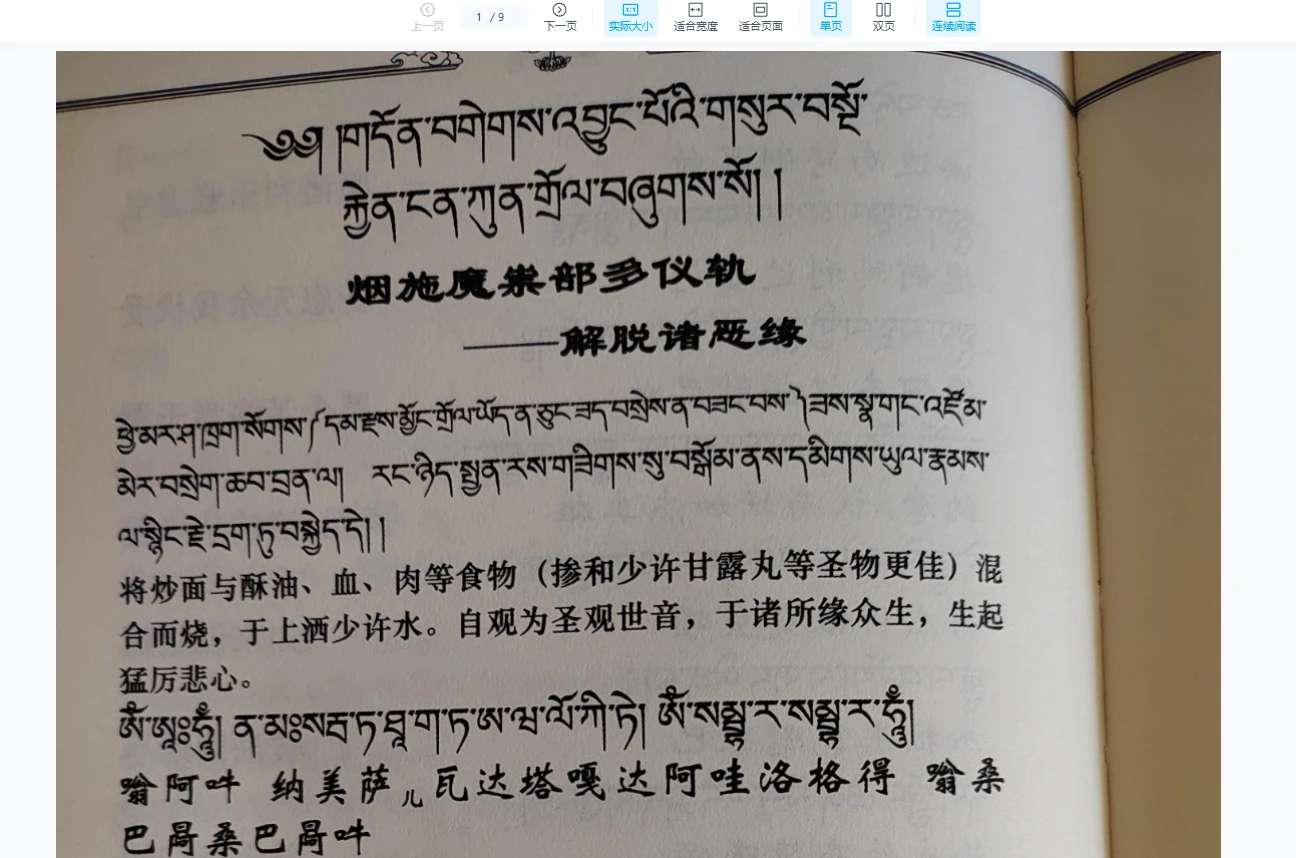 上一页
1 / 9
下一页
实际大小
适合宽度
适合页面
单页
双页
连续阅读
༄༅། །གདོན་བགེགས་འབྱུང་པོའི་གསུར་བསྔོ་
རྐྱེན་ངན་ཀུན་གྲོལ་བཞུགས་སོ། །
烟施魔祟部多仪轨
——解脱诸恶缘
ཕྱེ་མར་ཤ་ཁྲག་སོགས་(དམ་རྫས་མྱོང་གྲོལ་ཡོད་ན་ཅུང་ཟད་བསྲེས་ན་བཟང་བས་)ཟས་སྣ་གང་འཛོམ་
མེར་བསྲེག་ཆབ་བྲན་ལ། རང་ཉིད་སྤྱན་རས་གཟིགས་སུ་བསྒོམ་ནས་དམིགས་ཡུལ་རྣམས་
ལ་སྙིང་རྗེ་དྲག་ཏུ་བསྐྱེད་དེ། །
将炒面与酥油、血、肉等食物（掺和少许甘露丸等圣物更佳）混
合而烧，于上洒少许水。自观为圣观世音，于诸所缘众生，生起
猛厉悲心。
ཨོཾ་ཨཱཿཧཱུྃ། ན་མཿསརྦ་ཏ་ཐཱ་ག་ཏ་ཨ་ཝ་ལོ་ཀི་ཏེ། ཨོཾ་སམྦྷ་ར་སམྦྷ་ར་ཧཱུྃ།
嗡阿吽 纳美萨儿瓦达塔嘎达阿哇洛格得 嗡桑
巴局桑巴局吽